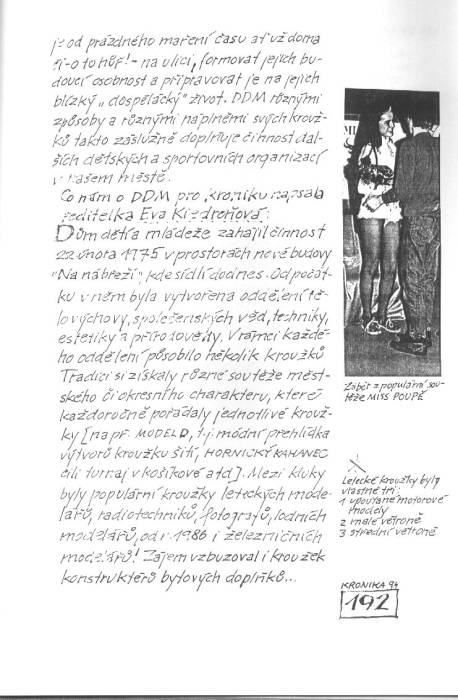 je od prázdného maření času ať už doma
či - o to hůř! - na ulici, formovat jejich bu-
doucí osobnost a připravovat je na jejich
blízký „dospělácký" život. DDM různými
způsoby a různými náplněmi svých krouž-
ků takto záslužně doplňuje činnost dal-
ších dětských a sportovních organizací
v našem městě.
Co nám o DDM pro kroniku napsala
ředitelka Eva Kiedroňová:
Dům dětí a mládeže zahájil činnost
22. února 1975 v prostorách nové budovy
"Na nábřeží", kde sídlí dodnes. Od počát-
ku v něm byla vytvořena oddělení tě-
lovýchovy, společenských věd, techniky,
estetiky a přírodovědy. V rámci každé-
ho oddělení působilo několik kroužků
Tradici si získaly různé soutěže měst-
ského či okresního charakteru, které
každoročně pořádaly jednotlivé krouž-
ky [např. MODEL D, t.j. módní přehlídka
výtvorů kroužku šití, HORNICKÝ KAHANEC
čili turnaj v košíkové atd]. Mezi kluky
byly populární kroužky leteckých mode-
lářů, radiotechniků, fotografů, lodních
modelářů, od r. 1986 i železničních
modelářů! Zájem vzbuzoval i kroužek
konstruktérů bytových doplňků...
Záběr z populární sou-
těže MISS POUPĚ
Letecké kroužky byly
vlastně tři:
1 upoutané motorové
modely
2 malé větroně
3 střední větroně
KRONIKA 94
192